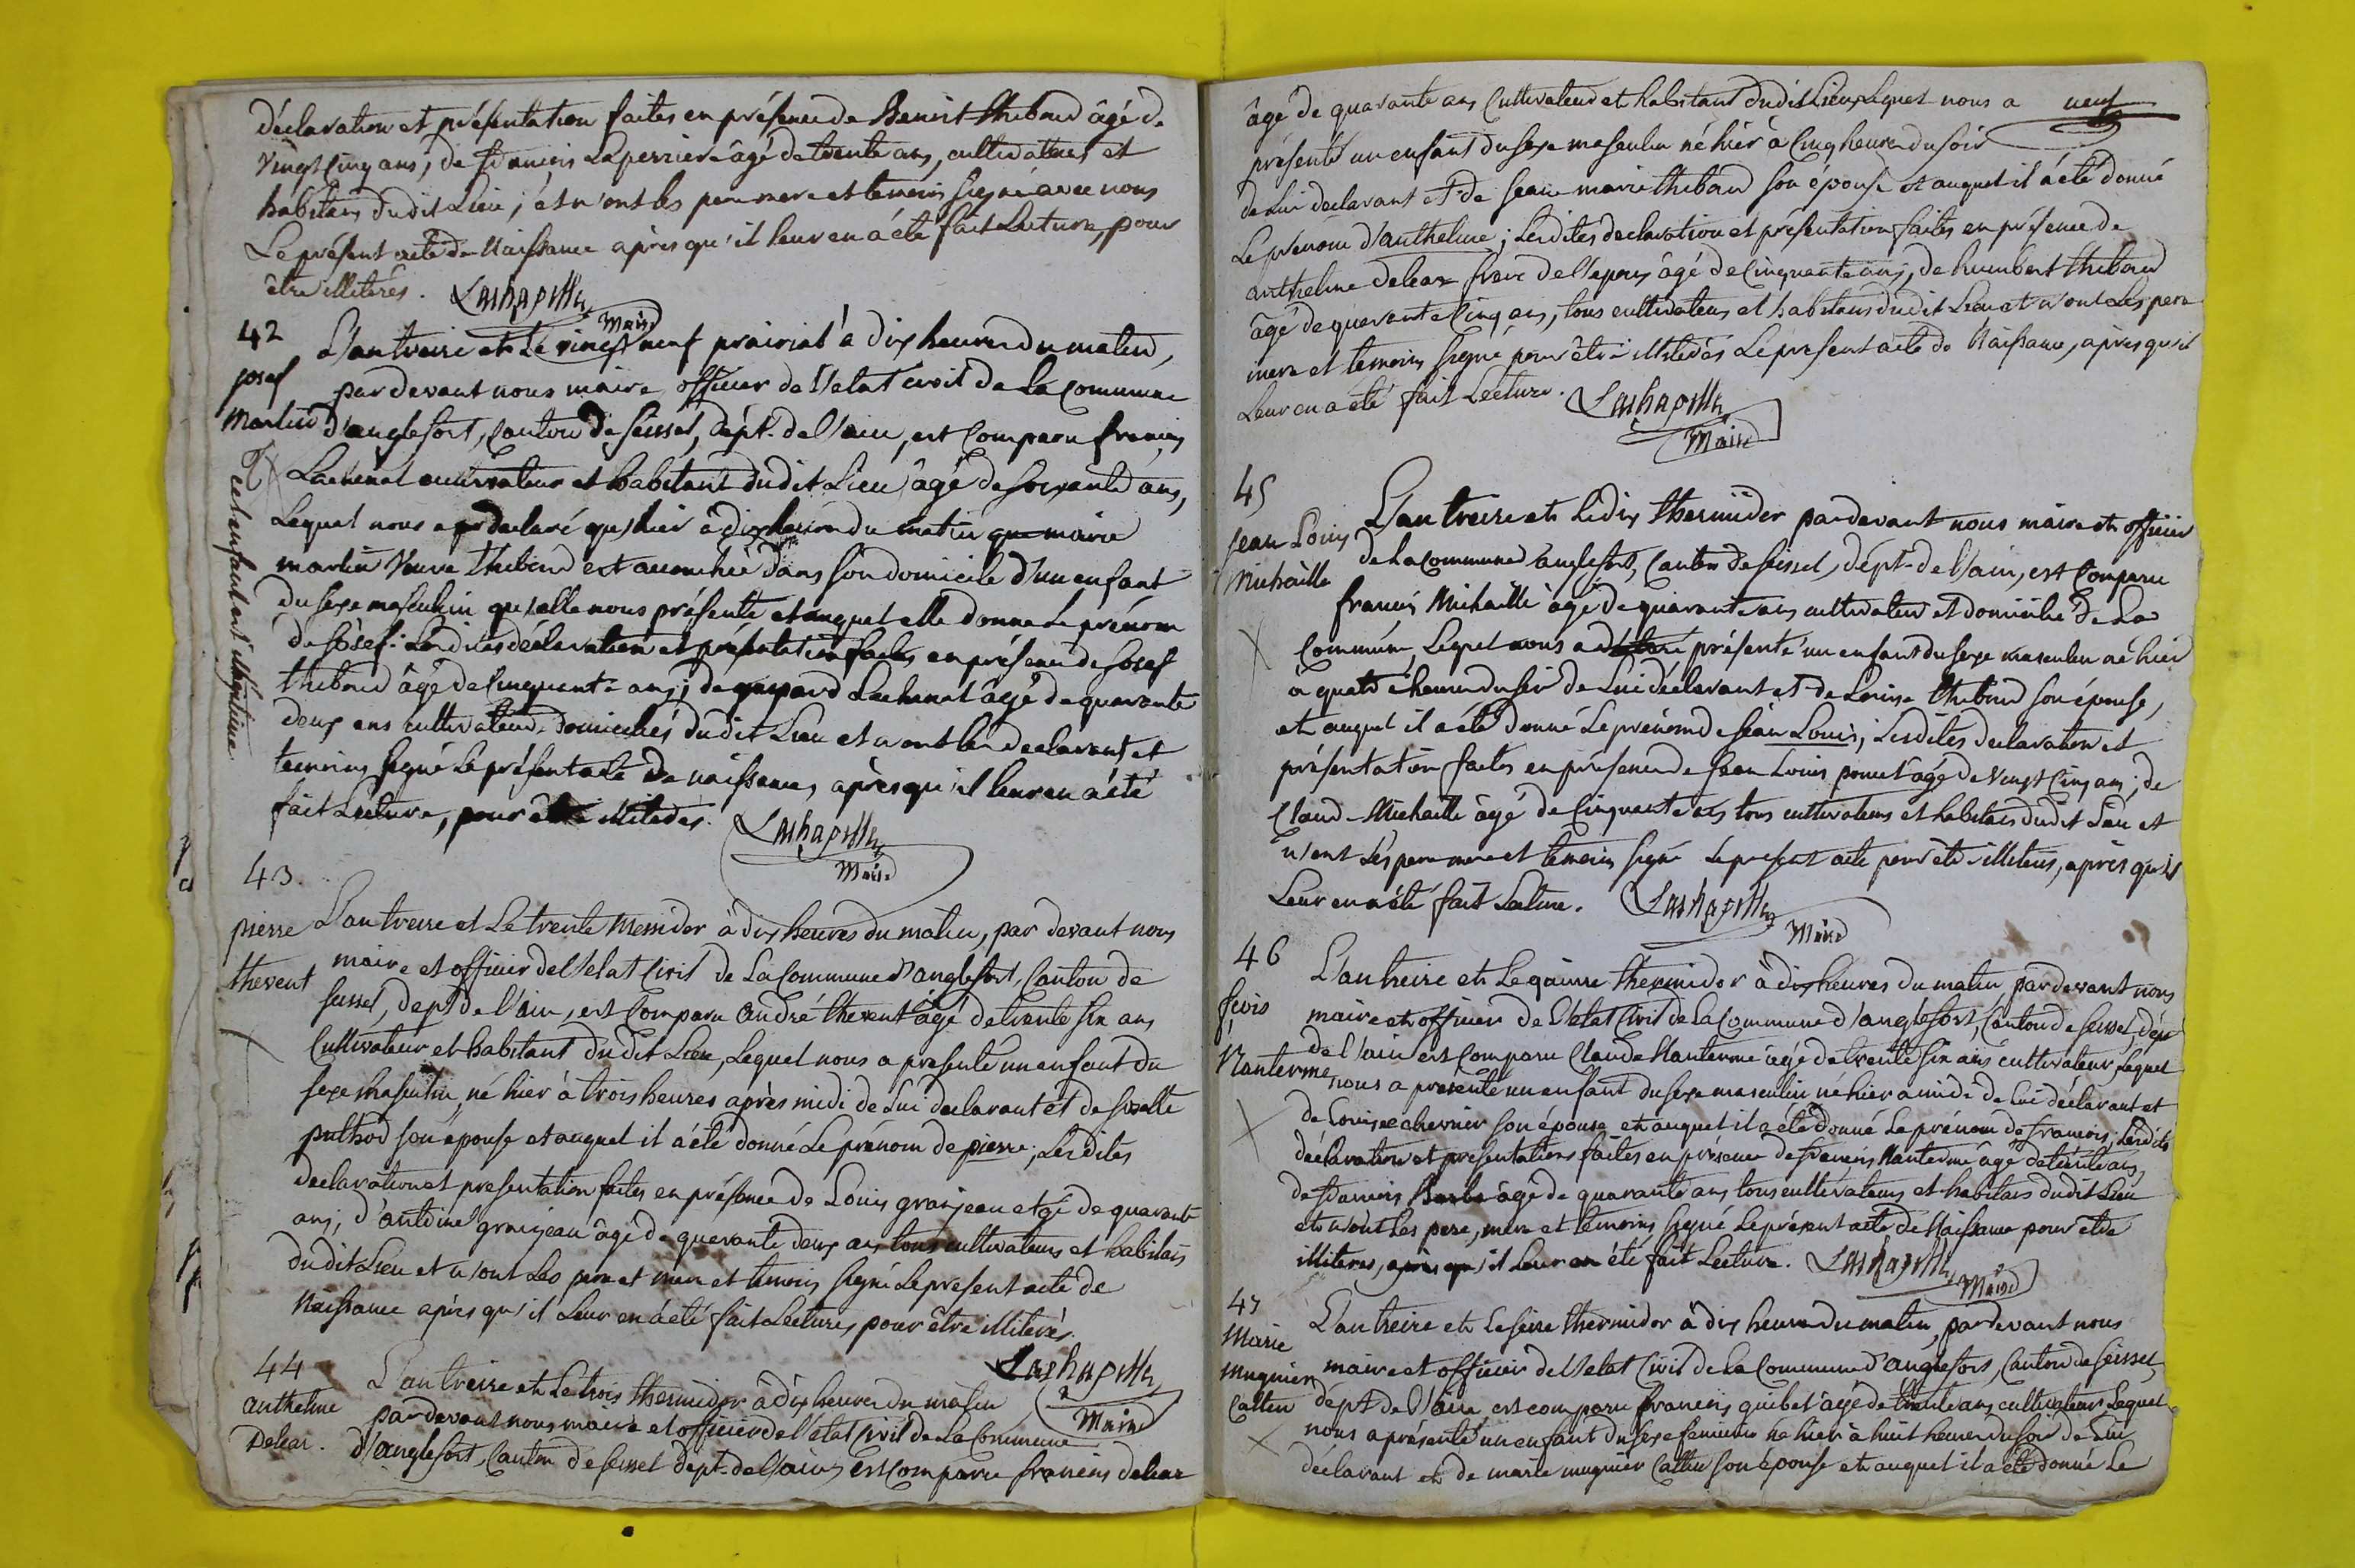 déclaration et présentation faites en présence de Benoit thibaud âgé de
vingt cinq ans, de francois Laperriere âgé de trente ans, cultivateurs et
habitans dudit Lieu; et n'ont les pere mere et temoins signé avec nous
Le présent acte de Naissance après qu'il leur en a été fait Lecture, pour
être illiterés. Lachapelle
Maire
42
josef
Martin
L'an treize et le vingt neuf prairial à dix heures du matin,
par devant nous maire, officier de l'etat civil de la commune
d'anglefort, Canton de seissel, dépt. de l'ain, est Comparu francois
Lachenal cultivateur et habitant dudit Lieu, âgé de soixante ans,
Lequel nous a declaré que hier à dix heures du matin que marie
martin Veuve thibaud est accouchée dans son domicile d'un enfant
du sexe masculin qu'elle nous présente et auquel elle donne Le prénom
de Josef: Lesdites déclaration et présentation faites en présence de Josef
thibaud âgé de Cinquante ans; de gaspard Lachenal âgé de quarante
deux ans cultivateurs domiciliés dudit Lieu et n'ont les declarant et
temoins signé Le présent acte de naissance, après qu'il leur en a été
fait Lecture, pour être illiterés. Lachapelle
Maire
cet enfant est illégitime
43.
pierre
thevent
L'an treize et Le trente Messidor à dix heures du matin, par devant nous
maire et officier de l'etat Civil de La Commune d'anglefort, Canton de
seissel, dept de l'ain, est Comparu andré thevent âgé de trente six ans
Cultivateur et habitant dudit Lieu, Lequel nous a presenté un enfant du
sexe masculin, né hier à trois heures après midi de Lui declarant et de
puthod son épouse et auquel il a été donné Le prénom de pierre; Lesdites
declaration et presentation faites en présence de Louis granjean agé de quarante
ans, d'antoine granjean âgé de quarante deux ans tous cultivateurs et habitans
dudit Lieu et n'ont Les pere et mere et temoins signé Le present acte de
Naissance après qu'il Leur en a été fait Lecture, pour être illiterés.
Lachapelle
Maire
44
antheline
Delear.
L'an treize et Le trois thermidor à dix heures du matin
par devant nous maire et officier de l'état Civil de La Commune
d'anglefort, Canton de seissel dept. de l'ain, est Comparu francois delear
neuf
âgé de quarante ans Cultivateur et habitant dudit Lieu, Lequel nous a
présenté un enfant du sexe masculin né hier à Cinq heures du soir
de Lui declarant et de Jeane marie thibaud son épouse et auquel il a été donné
Le prénom d'antheline; Lesdites declaration et présentation faites en présence de
antheline delear âgé de Cinquante ans, de humbert thibaud
âgé de quarante Cinq ans, tous cultivateurs et habitans dudit Lieu et n'ont Les pere
mere et temoins signé pour être illiterés Le present acte de Naissance, après qu'il
Leur en a été fait Lecture. Lachapelle
Maire
45
Jean Louis
Michaille
L'an treize et Le dix thermidor par devant nous maire et officier
de La commune d'anglefort, Canton de seissel, dépt. de l'ain, est Comparu
francois Michaille âgé de quarante ans cultivateur et domicilié de La
Commune, Lequel nous a présenté un enfant du sexe masculin né hier
à quatre heures du soir de Lui déclarant et de Louise thibaud son épouse,
et auquel il a été donné Le prénom de jean Louis; Lesdites declaration et
présentation faites en présence de Jean Louis poncet âgé de Vingt Cinq ans; de
Claud Michaille âgé de Cinquante ans tous cultivateurs et habitans dudit Lieu et
n'ont Les pere mere et temoins signé Le present acte pour être illiterés, après qu'il
Leur en a été fait Lecture. Lachapelle
Maire
46
Nanterme
L'an treize et Le quinze thermidor à dix heures du matin, par devant nous
maire et officier de l'etat Civil de La Commune d'anglefort, Canton de seissel, dépt
de l'ain est Comparu Claude Nanterme âgé de trente six ans cultivateur, Lequel
nous a presenté un enfant du sexe masculin né hier a midi de Lui déclarant et
de Louise chernier son épouse et auquel il a été donné Le prénom de francois; Lesdits
déclaration et presentations faites en présence de francois Nanterme âgé de trente ans,
de francois âgé de quarante ans, tous cultivateurs et habitans dudit Lieu
et n'ont Les pere, mere et temoins signé Le présent acte de Naissance pour etre
illiteres, après qu'il Leur en été fait Lecture. Lachapelle
Maire
47
Marie
mugnier
Cattin
L'an treize et Le seize thermidor à dix heures du matin, par devant nous
maire et officier de l'etat Civil de La Commune d'anglefort, Canton de seissel,
dépt de l'ain est comparu francois quibet âgé de trente ans cultivateur Lequel
nous a présenté un enfant du sexe feminin né hier à huit heures du soir de Lui
déclarant et de marie mugnier Cattin son épouse et auquel il a été donné Le